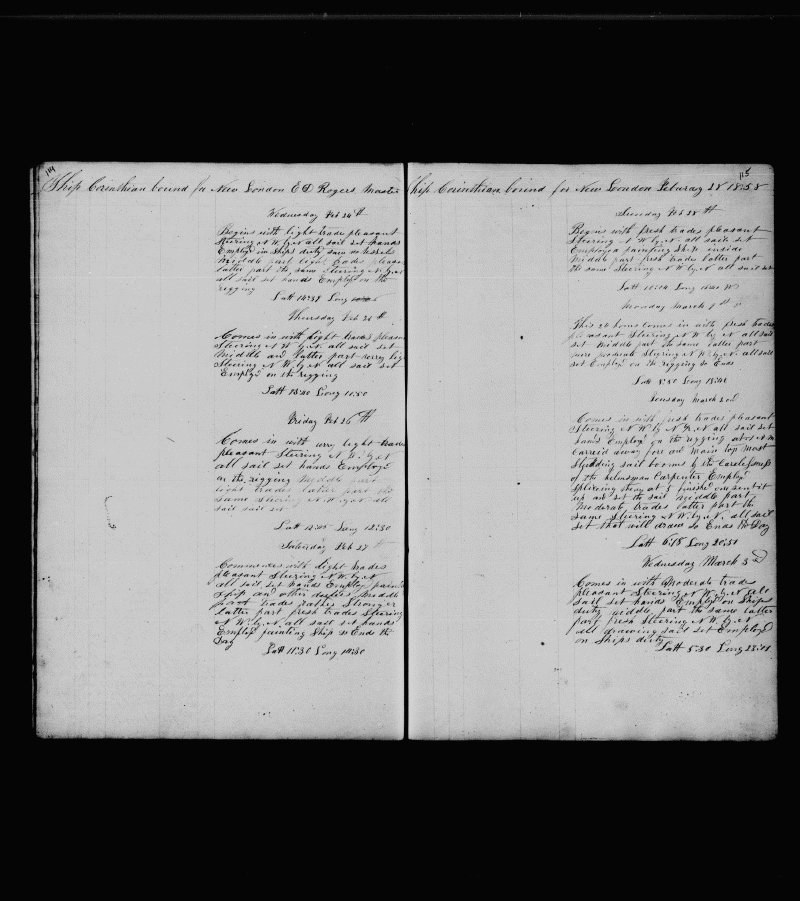 114
Ship Corinthian bound for New London E D Rogers Master
Wednesday Feb 24th
Begins with light trade pleasant
Steering N W by N all sail set hands
Employd in Ships duty
Middle part light trades pleasant
latter part the same Steering N W by N
all sail set hands Employd on the
rigging
Latt 14:39 Long
Thursday Feb 25th
Comes in with light trades pleasant
Steering N W by N all sail set
Middle and latter part very light
Steering N W by N all sail set
Employd on the rigging
Latt Long 10:50
Friday Feb 26th
Comes in with very light trades
pleasant Steering N W by N
all sail set hands Employd
on the rigging Middle part
light trades latter part the
same steering N W by N all
sail set
Latt Long 12:30
Saturday Feb 27th
Commences with light trades
pleasant Steering N W by N
all sail set hands Employ painting
Ship and other duties Middle
part trades rather Stronger
latter part fresh trades Steering
N W by N all sail set hands
Employd painting Ship so Ends the
Day
Latt 11:30 Long 14:30
115
Ship Corinthian bound for New London Feburay 28 1858
Sunday Feb 28th
Begins with fresh trades pleasant
Steering N W by N all sail set
Employed painting Ship inside
Middle part fresh trades latter part
the same Steering N W by N all sail set
Latt 10:04 Long
Monday March 1st
This 24 hours Comes in with fresh trades
pleasant Steering N W by N all sail
set Middle part the same latter part
more moderate Steering N W by N all sail
set Employd on the rigging so Ends
Latt 8:50 Long
Tuesday March 2nd
Comes in with fresh trades pleasant
Steering N W by N all sail set
hands Employd on the rigging
Carreid away fore and Main top Mast
Studding sail booms by the Carelessness
of the helmsman Carpenter Employd
Splicing them at 5 finished one sent it
up and set the sail Middle part
Moderate trades latter part the
same Steering N W by N all sail
set that will draw so Ends the Day
Latt 6:18 Long 20:51
Wednesday March 3d
Comes in with Moderate trades
pleasant Steering N W by N all
sail set hands Employ on Ships
duty Middle part the same latter
part fresh Steering N W by N
all drawing sail set Employd
on Ships duty
Latt 5:30 Long